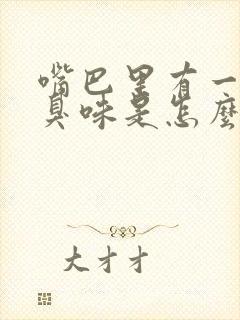 嘴巴里有一
臭味是怎麽
大才才